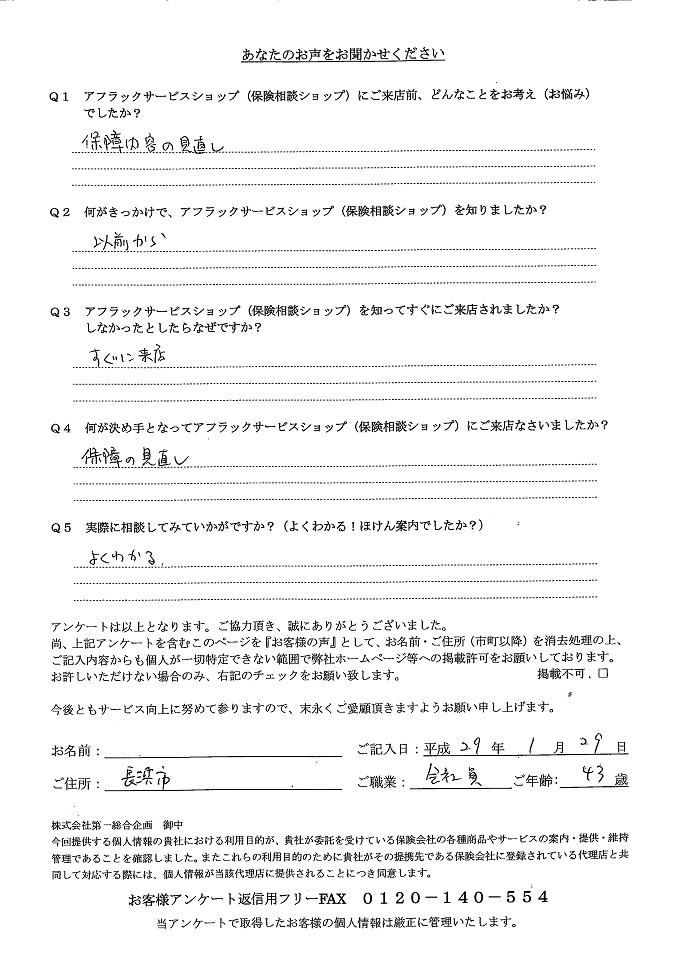 あなたのお声をお聞かせください
Q1 アフラックサービスショップ（保険相談ショップ）にご来店前、どんなことをお考え（お悩み）
でしたか？
保障内容の見直し
Q2 何がきっかけで、アフラックサービスショップ（保険相談ショップ）を知りましたか？
以前から
Q3 アフラックサービスショップ（保険相談ショップ）を知ってすぐにご来店されましたか？
しなかったとしたらなぜですか？
すぐに来店
Q4 何が決め手となってアフラックサービスショップ（保険相談ショップ）にご来店なさいましたか？
保障の見直し
Q5 実際に相談してみていかがですか？（よくわかる！ほけん案内でしたか？）
よくわかる。
アンケートは以上となります。ご協力頂き、誠にありがとうございました。
尚、上記アンケートを含むこのページを『お客様の声』として、お名前・ご住所（市町以降）を消去処理の上、
ご記入内容からも個人が一切特定できない範囲で弊社ホームページ等への掲載許可をお願いしております。
お許しいただけない場合のみ、右記のチェックをお願い致します。 掲載不可．□
今後ともサービス向上に努めて参りますので、末永くご愛顧頂きますようお願い申し上げます。
お名前： ご記入日：平成 29 年 1 月 29 日
ご住所： 長浜市 ご職業： 会社員 ご年齢： 43 歳
株式会社第一総合企画 御中
今回提供する個人情報の貴社における利用目的が、貴社が委託を受けている保険会社の各種商品やサービスの案内・提供・維持
管理であることを確認しました。またこれらの利用目的のために貴社がその提携先である保険会社に登録されている代理店と共
同して対応する際には、個人情報が当該代理店に提供されることにつき同意します。
お客様アンケート返信用フリーFAX 0120-140-554
当アンケートで取得したお客様の個人情報は厳正に管理いたします。